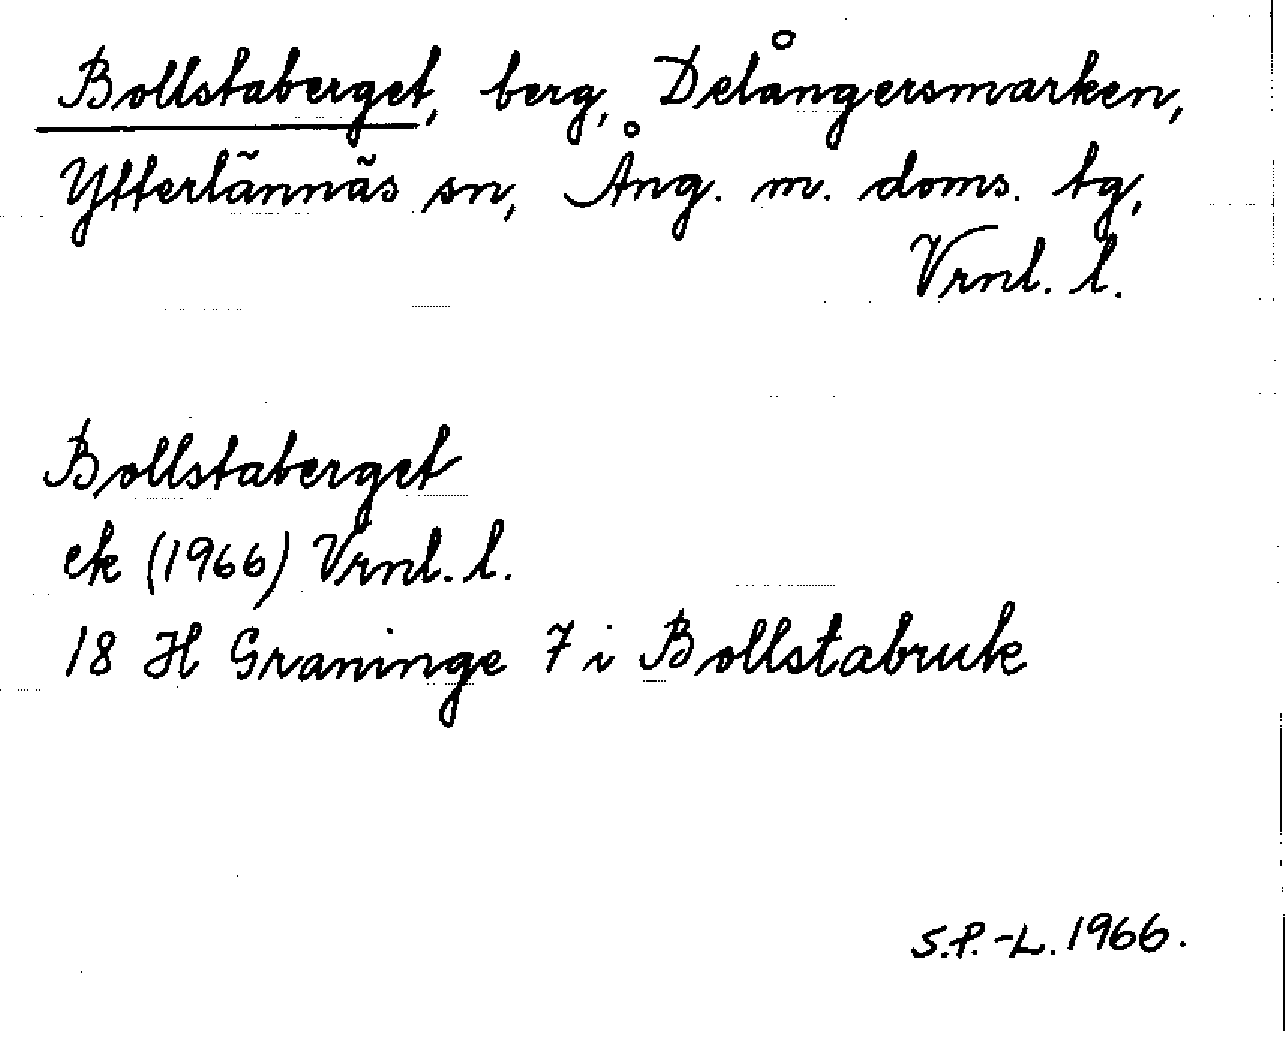 Bollstaberget, berg, Delångersmarken,
Ytterlännäs sn, Ång. m. doms. tg,
Vrnl. l.
Bollstaberget
ek (1966) Vrnl. l.
18 H Graninge 7 i Bollstabruk
S.P.-L. 1966.